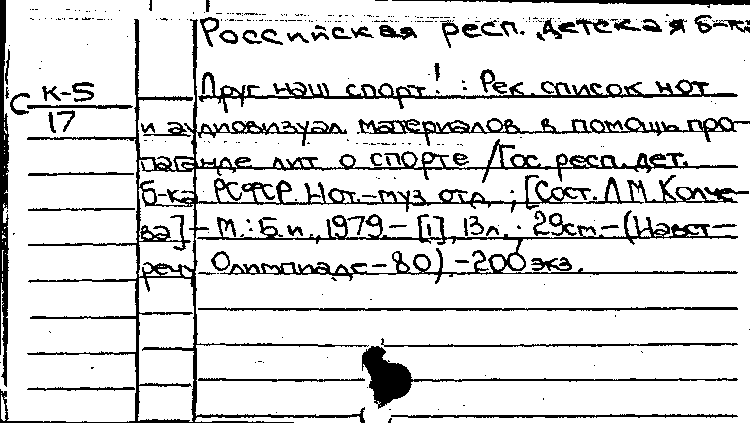 Российская респ. детская б-ка
С К-5
17
Друг наш спорт! : Рек. список нот
и аудиовизуал. материалов в помощь про-
паганде лит. о спорте / Гос. респ. дет.
б-ка РСФСР. Нот.-муз. отд. ; [Сост. Л.М. Колче-
ва] - М. : Б.и., 1979. - [1], 13 л. ; 29 см - (Навст-
речу Олимпиаде - 80). - 200 экз.